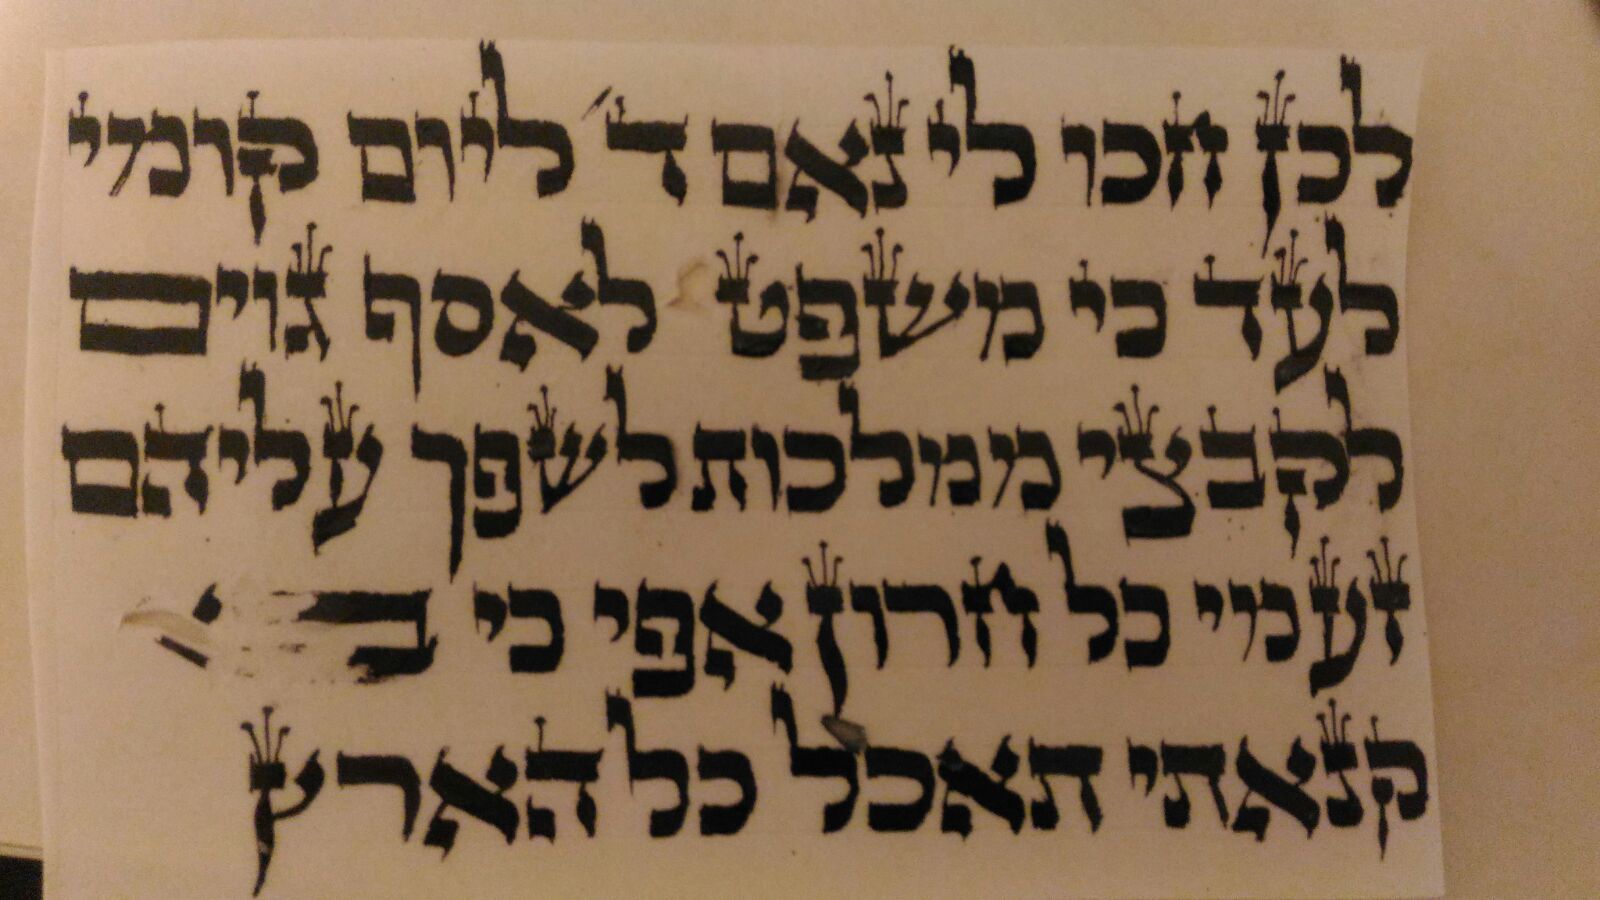 לכן חכו לי נאם ד' ליום קומי
לעד כי משפט לאסף גוים
לקבצי ממלכות לשפך עליהם
זעמי כל חרון אפי כי
קנאתי תאכל כל הארץ